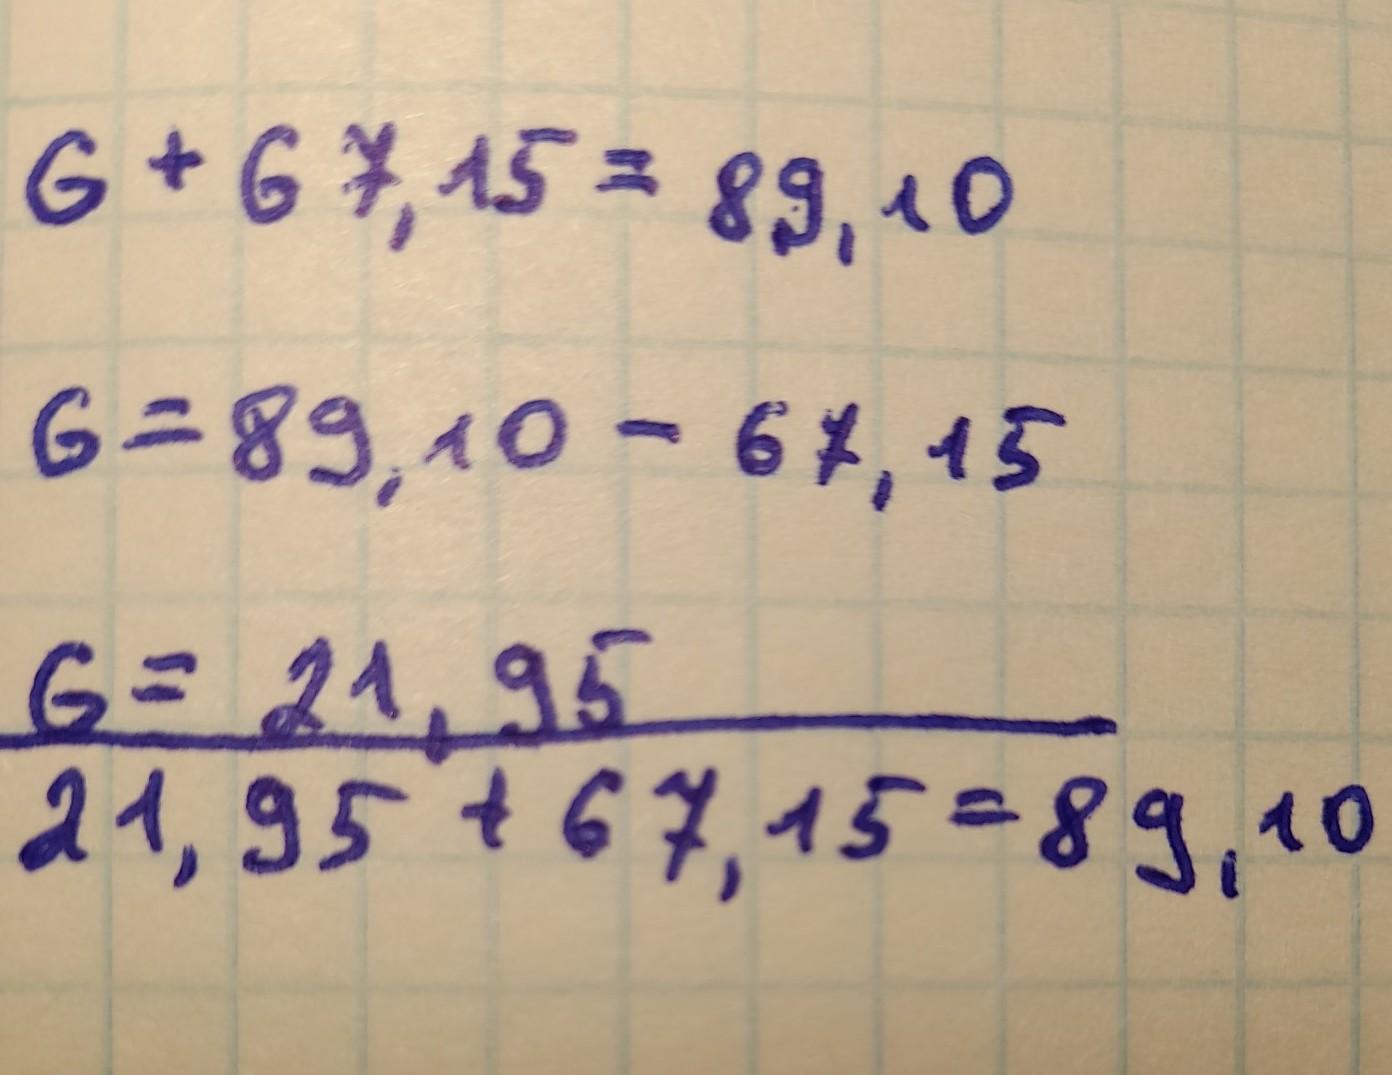 G + 67,15 = 89,10
G = 89,10 - 67,15
G = 21,95
21,95 + 67,15 = 89,10